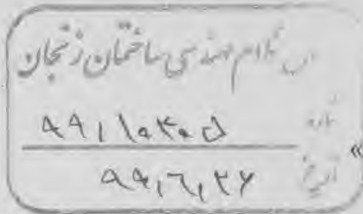 نظام مهندسی ساختمان زنجان
شماره ۹۹/۱۰۳۰۵
تاریخ ۹۹/۶/۲۶
»